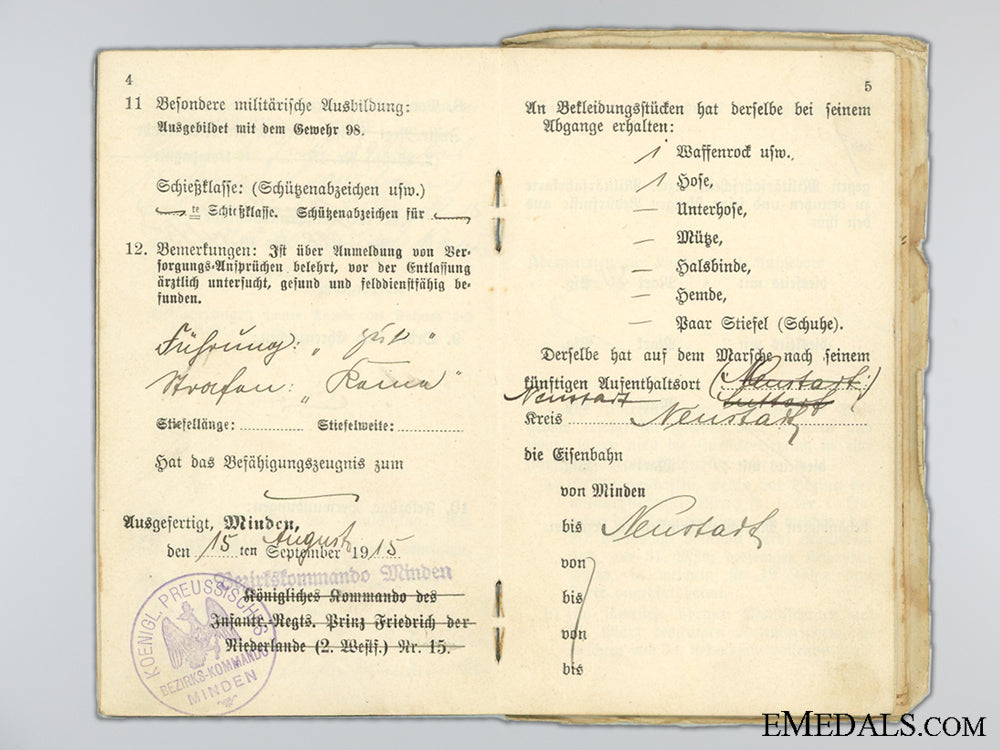 4
11 Besondere militärische Ausbildung:
Ausgebildet mit dem Gewehr 98.
Schießklasse: (Schützenabzeichen usw.)
te Schießklasse. Schützenabzeichen für
12. Bemerkungen: Ist über Anmeldung von Ver-
sorgungs-Ansprüchen belehrt, vor der Entlassung
ärztlich untersucht, gesund und felddienstfähig be-
funden.
Führung: „gut"
Strafen: „Keine"
Stiefellänge: Stiefelweite:
Hat das Befähigungszeugnis zum
Ausgefertigt, Minden,
August
den 15 ten September 1915
Bezirkskommando Minden
Königliches Kommando des
Infantr.-Regts. Prinz Friedrich der
Niederlande (2. Westf.) Nr. 15.
KOENIGL. PREUSSISCHES
BEZIRKS-KOMMANDO
MINDEN
5
An Bekleidungsstücken hat derselbe bei seinem
Abgange erhalten:
1 Waffenrock usw.,
1 Hose,
— Unterhose,
— Mütze,
— Halsbinde,
— Hemde,
— Paar Stiefel (Schuhe).
Derselbe hat auf dem Marsche nach seinem
künftigen Aufenthaltsort (Neustadt)
Neustadt
Kreis Neustadt
die Eisenbahn
von Minden
bis Neustadt
von
bis
von
bis
EMEDALS.COM